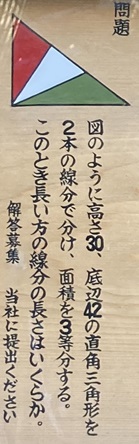 問題
図のように高さ30、底辺42の直角三角形を
2本の線分で分け、面積を3等分する。
このとき長い方の線分の長さはいくらか。
解答募集 当社に提出ください